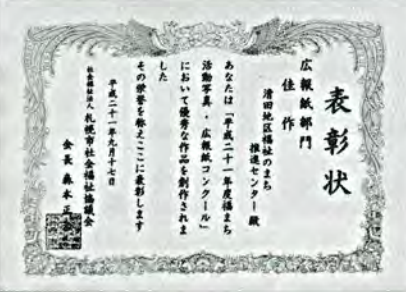 表彰状
広報紙部門
佳作
清田地区福祉のまち
推進センター殿
あなたは「平成二十一年度福まち
活動写真・広報紙コンクール」
において優秀な作品を創作されま
した
その栄誉を称えここに表彰します
平成二十一年九月十七日
社会福祉法人 札幌市社会福祉協議会
会長 森本正